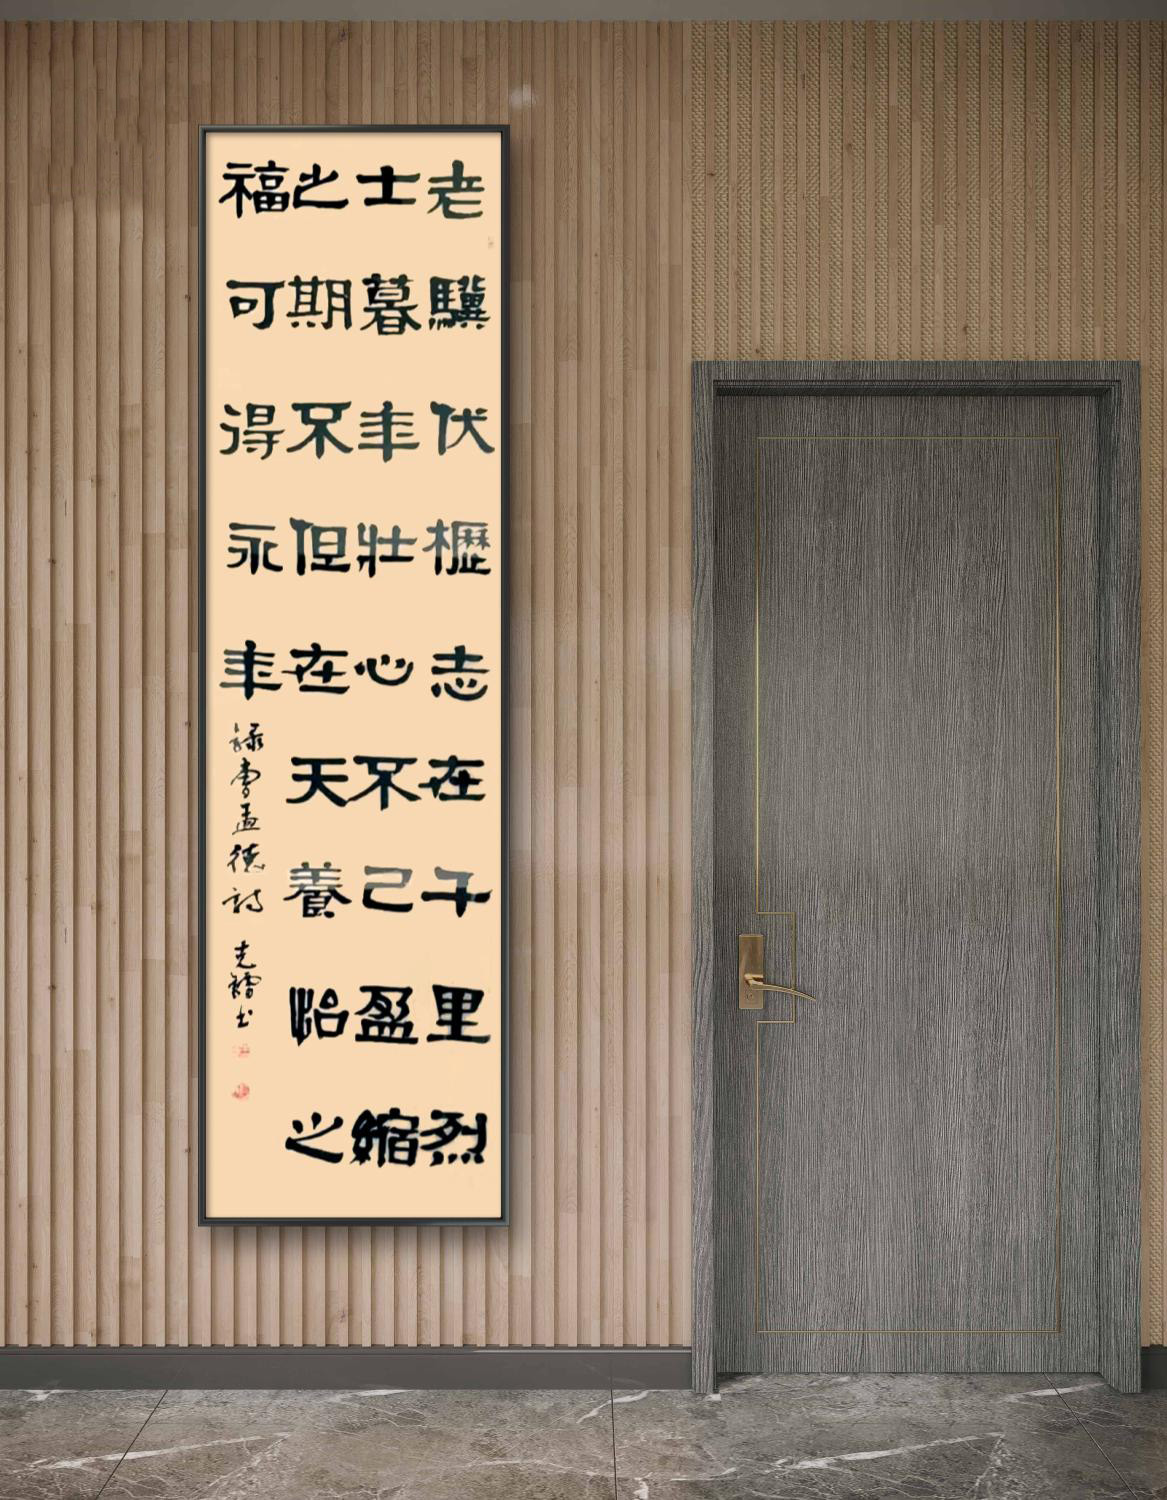 老驥伏櫪志在千里烈
士暮年壯心不已盈縮
之期不但在天養怡之
福可得永年
錄曹孟德詩
克书